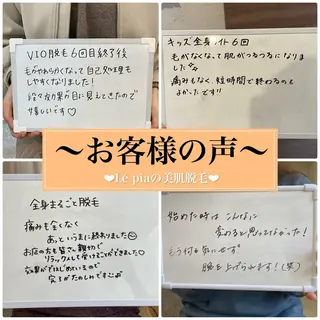 VIO脱毛6回目終了後
毛がやわらかくなって自己処理も
しやすくなりました！
段々効果が目に見えてきたので
嬉しいです♡
キッズ全身ライト6回
毛がなくなって肌がつるつるになりま
した
痛みもなく、短時間で終わるのも
よかったです!!
〜お客様の声〜
❤Le piaの美肌脱毛❤
全身まるごと脱毛
痛みも全くなく
あっという間に終わりました
お店の方も皆さん親切で
リラックスして受けることができました♡
効果がではじめているので
次回がたのしみです
始めた時は こんなに
変わると思ってなかった！
もう何も気にせず
腕を上げられます！(笑)